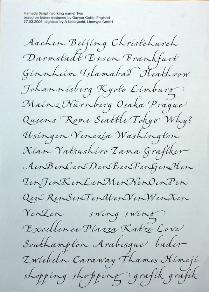 Aachen Beijing Christchurch
Darmstadt Essen Frankfurt
Ginnheim Islamabad Heathrow
Johannisberg Kyoto Limburg
Mainz Nürnberg Osaka Prague
Queens Rome Seattle Tokyo Why?
Usingen Venezia Washington
Xian Yatsushiro Zama Grafiker
AenBenCenDenEenFenGenHen
IenJenKenLenMenNenOenPen
Qen RenSenTenUenVenWenXen
YenZen swing swing
Excellence Piazza Katze Love
Southampton Arabisque
Zwiebeln Caraway Thames Himeji
shopping shopping grafik grafik